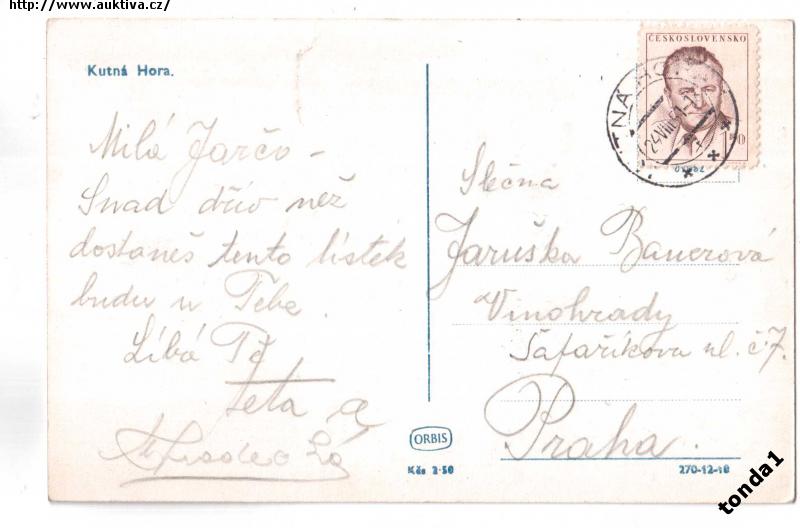 http://www.auktiva.cz/
Kutná Hora.
Milá Jarčo -
Snad dřív než
dostaneš tento lístek
budu u Tebe.
Líbá Tě
teta a
Slečna
Jaruška Bauerová
Vinohrady
Šafaříkova ul. č 7.
Praha.
ČESKOSLOVENSKO
ORBIS
Kčs 2·50
270-12-18
tonda1